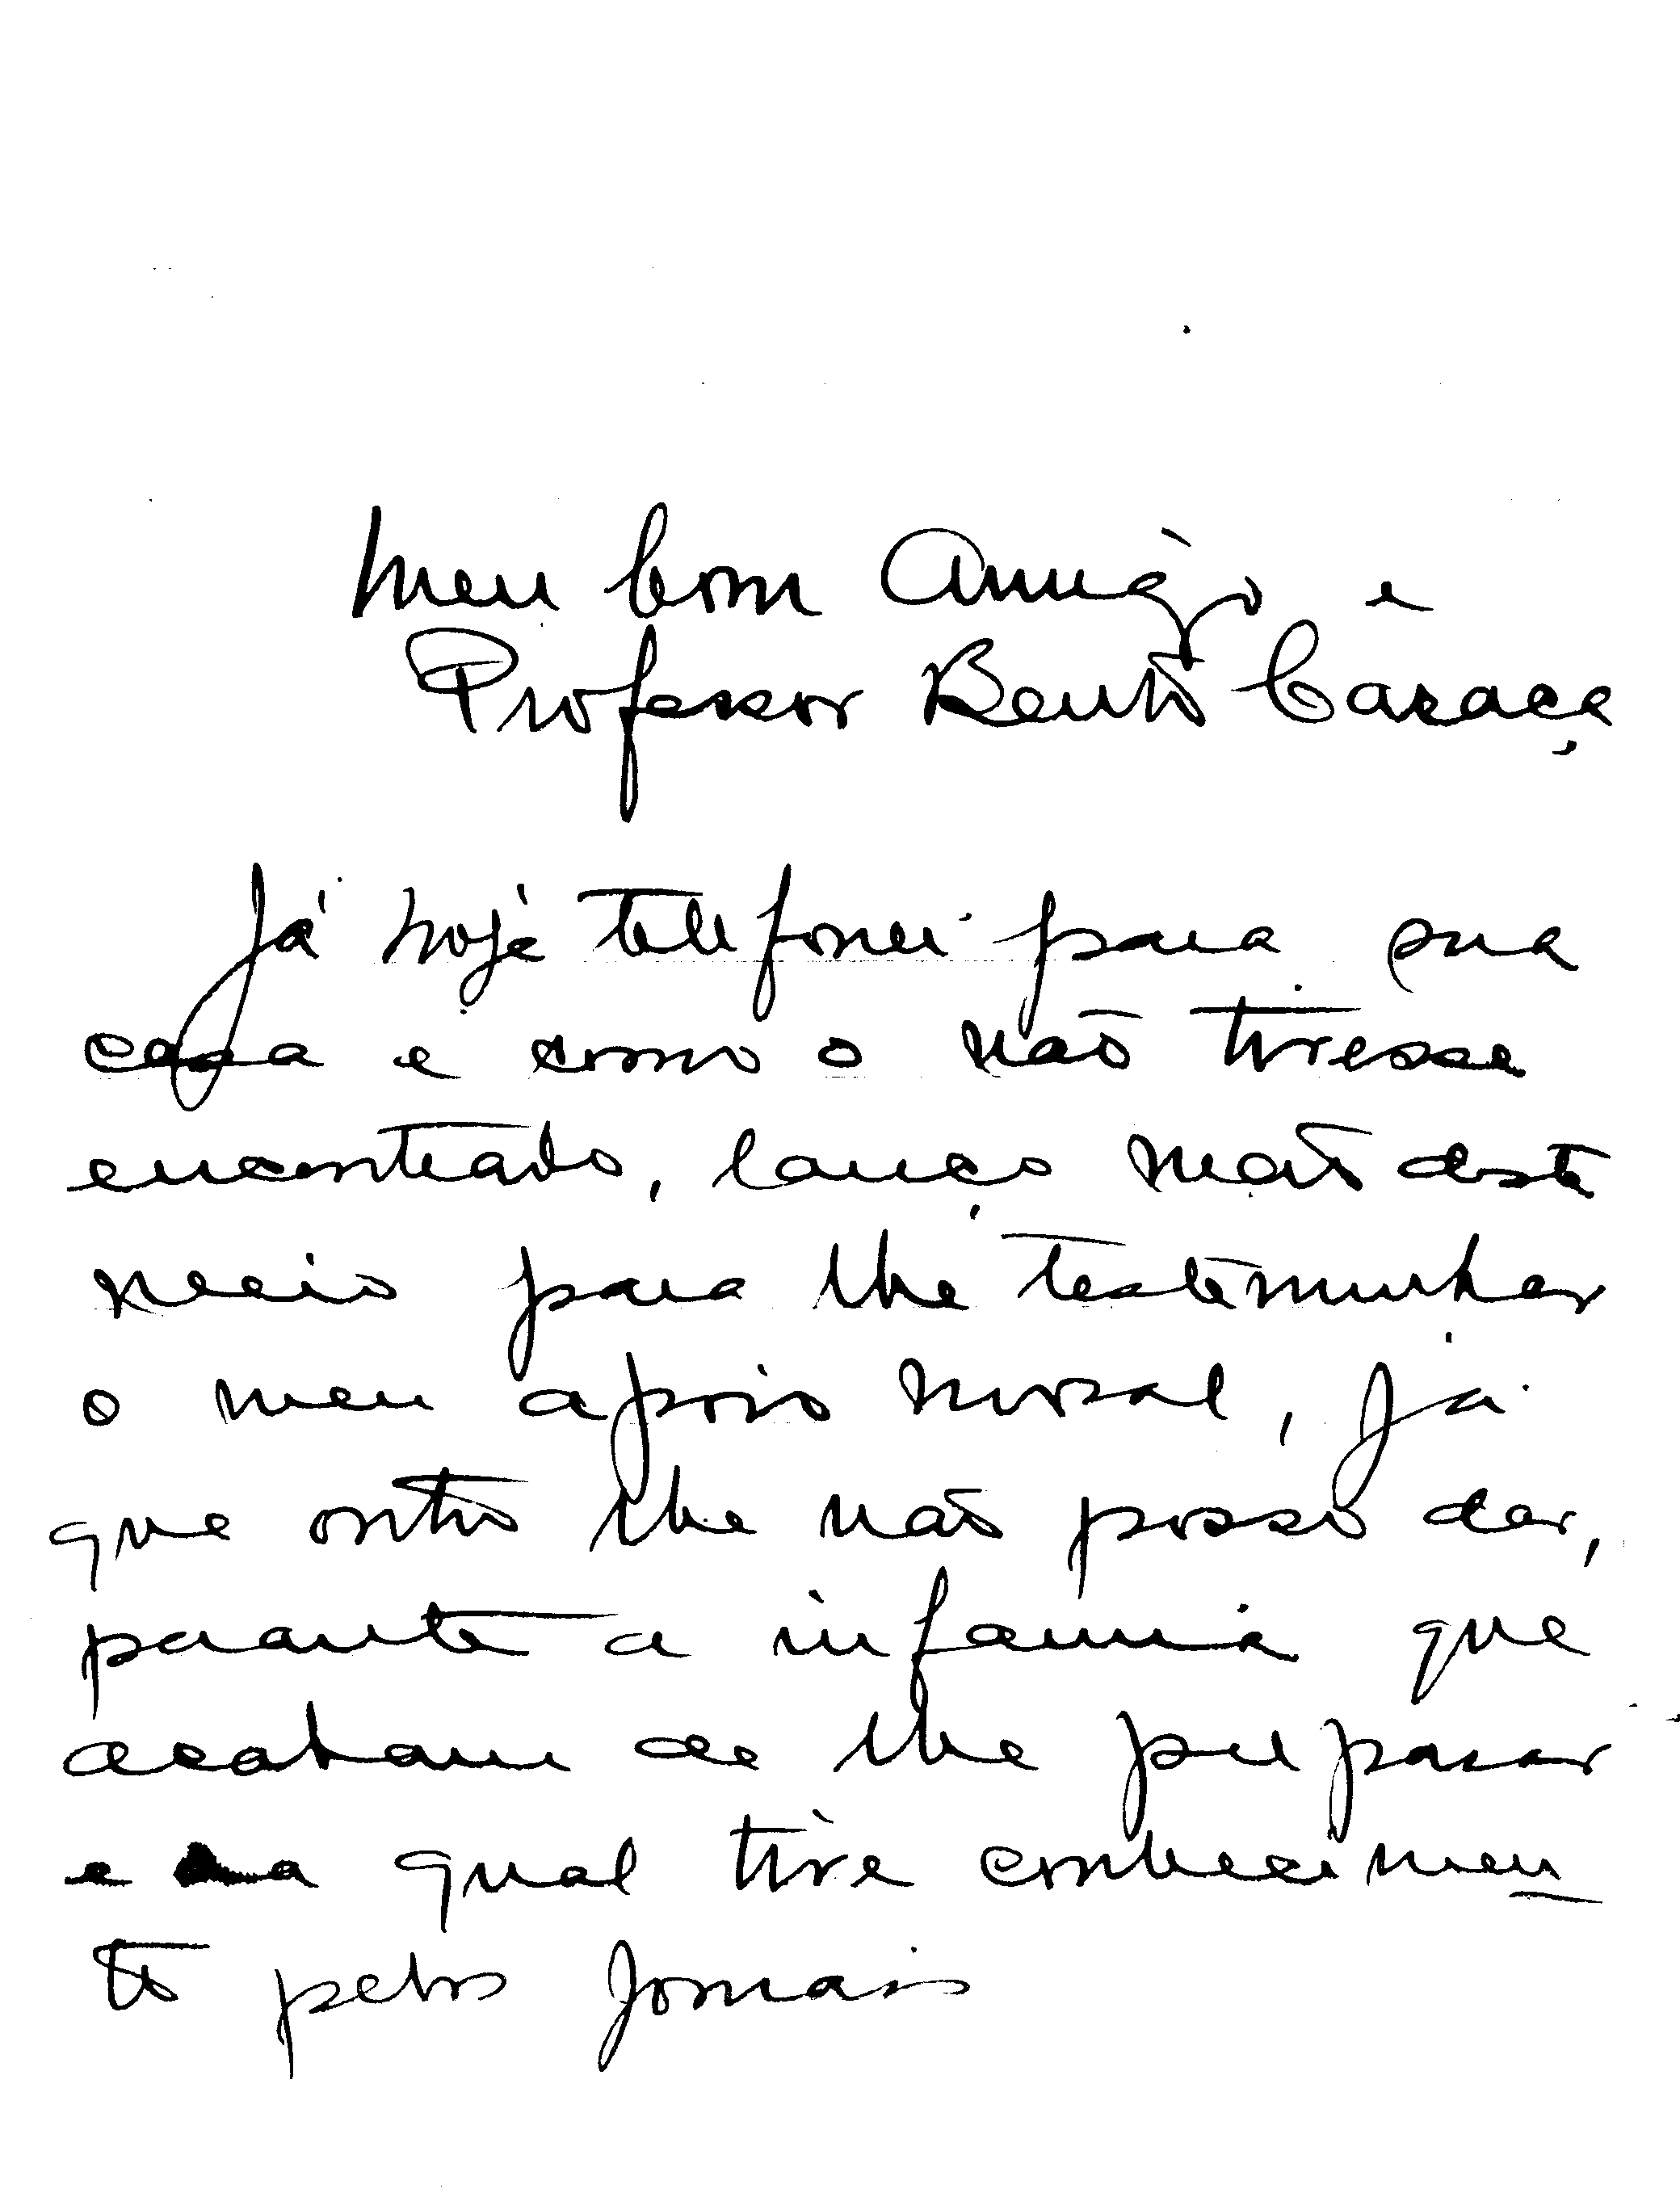 Meu bom Amigo e
Professor Bento Caraça
Já hoje telefonei para sua
casa e como o não tivesse
encontrado, lanço mão deste
meio para lhe testemunhar
o meu apoio moral, já
que outro lhe não posso dar,
perante a infamia que
acabam de lhe preparar
e a qual tive conhecimen
to pelos Jornais